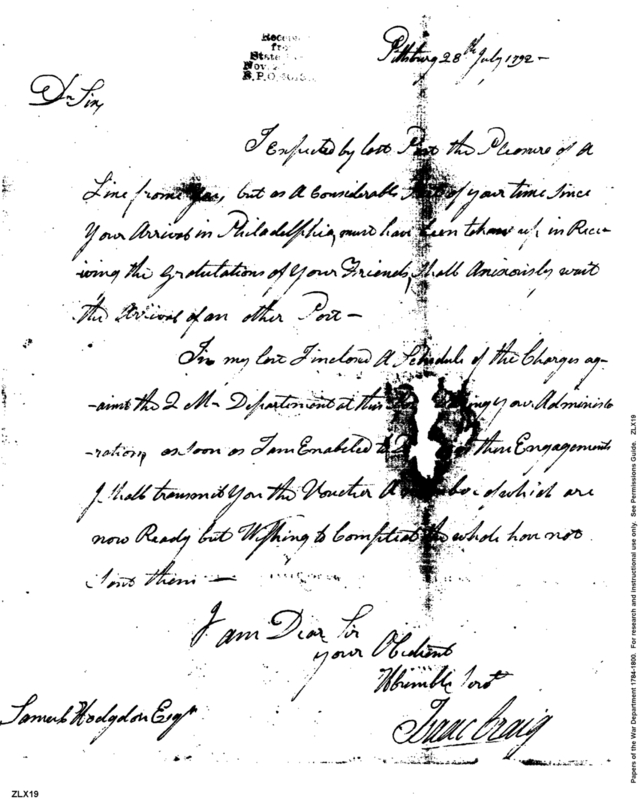 Received
from
State
Nov.
B.P.O.
Pittsburg 28th July 1792 -
Dr Sir,
I Expected by last Post the Pleasure of A
Line from You, but as A Considerable of your time since
Your Arrival in Philadelphia, must have been taken up, in Rece-
-iving the Gratulations of Your Friends, Shall Anxiously wait
the Arrival of an other Post -
In my last I inclosed A Schedule of the Charges ag-
-ainst the Q M- Department at this your Administ-
-ration, as soon as I am Enabled to these Engagements
I shall transmit You the Voucher A Number of which are
now Ready but Wishing to Compleat the whole have not
Sent them -
I am Dear Sir
your Obedient
Humble Servt
Isaac Craig
Samuel Hodgdon Esqr
ZLX19
Papers of the War Department 1784-1800. For research and instructional use only. See Permissions Guide. ZLX19